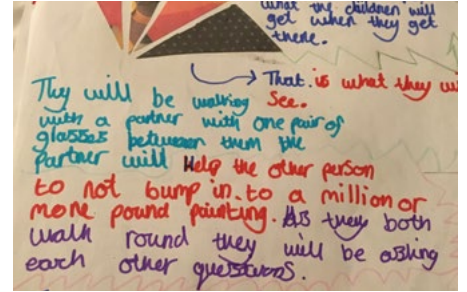 what the children will
get when they get
there.
That is what they wi
See.
They will be walking
with a partner with one pair of
glasses between them the
partner will Help the other person
to not bump in.to a million or
more pound painting. As they both
walk round they will be asking
each other questions.